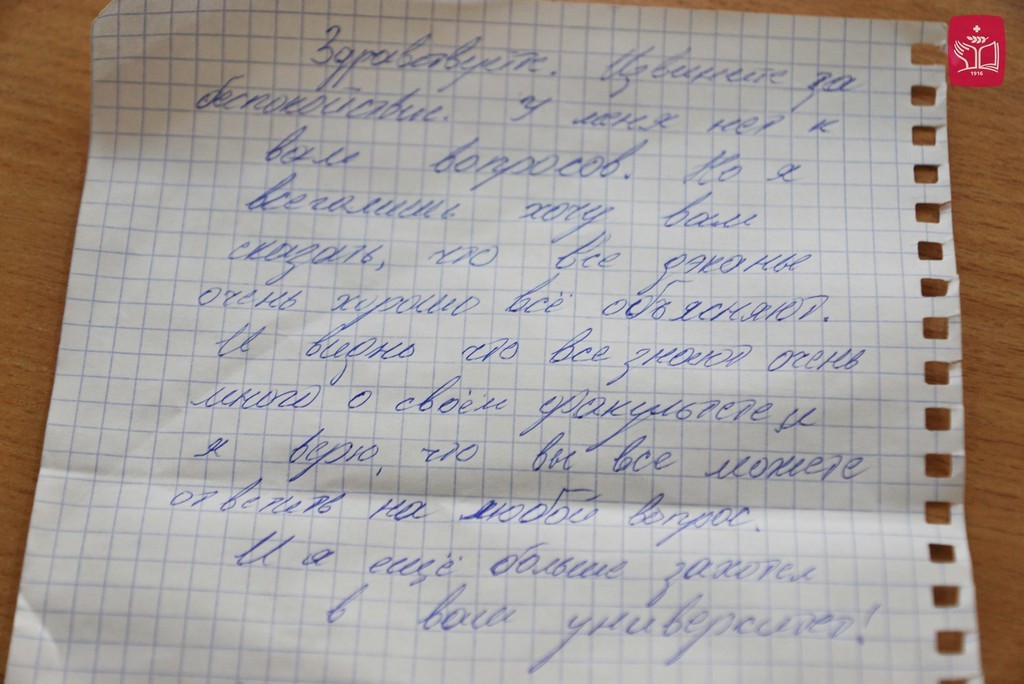 Здравствуйте. Извините за
беспокойствие. У меня нет к
вам вопросов. Но я
всеголишь хочу вам
сказать, что все дэканы
очень хорошо всё объясняют.
И видно что все знают очень
много о своём факультете и
я верю, что вы все можете
ответить на любой вопрос.
И я ещё больше захотел
в ваш университет!
1916